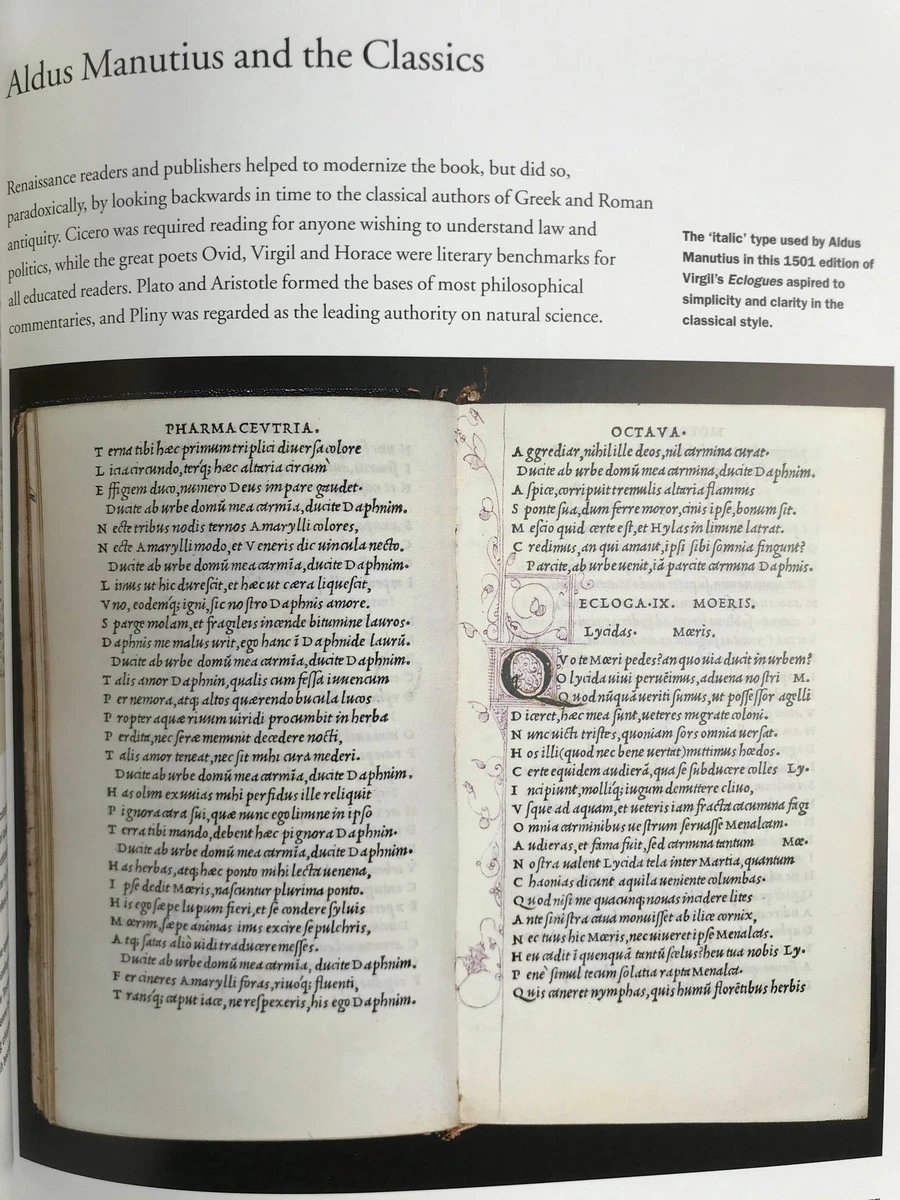 Aldus Manutius and the Classics
Renaissance readers and publishers helped to modernize the book, but did so,
paradoxically, by looking backwards in time to the classical authors of Greek and Roman
antiquity. Cicero was required reading for anyone wishing to understand law and
politics, while the great poets Ovid, Virgil and Horace were literary benchmarks for
all educated readers. Plato and Aristotle formed the bases of most philosophical
commentaries, and Pliny was regarded as the leading authority on natural science.
The ‘italic’ type used by Aldus
Manutius in this 1501 edition of
Virgil’s Eclogues aspired to
simplicity and clarity in the
classical style.
PHARMACEVTRIA.
T erna tibi hæc primum triplici diuersa colore
L icia circundo, terq; hæc altaria circum
E ffigiem duco, numero Deus impare gaudet.
Ducite ab urbe domũ mea carmĩa, ducite Daphnim.
N ecte tribus nodis ternos Amarylli colores,
N ecte Amarylli modo, et Veneris dic uincula necto.
Ducite ab urbe domũ mea carmĩa, ducite Daphnim.
L imus ut hic durescit, et hæc ut cæra liquescit,
V no, eodemq́; igni, sic nostro Daphnis amore.
S parge molam, et fragileis incende bitumine lauros.
D aphnis me malus urit, ego hanc ĩ Daphnide laurũ.
Ducite ab urbe domũ mea carmĩa, ducite Daphnim.
T alis amor Daphnin, qualis cum fessa iuuencum
P er nemora, atq; altos quærendo bucula lucos
P ropter aquæ riuum uiridi procumbit in herba
P erdita, nec seræ meminit decedere nocti,
T alis amor teneat, nec sit mihi cura mederi.
Ducite ab urbe domũ mea carmĩa, ducite Daphnim.
H as olim exuuias mihi perfidus ille reliquit
P ignora cara sui, quæ nunc ego limine in ipso
T erra tibi mando, debent hæc pignora Daphnin.
Ducite ab urbe domũ mea carmĩa, ducite Daphnim.
H as herbas, atq; hæc ponto mihi lecta uenena,
I pse dedit Mœris, nascuntur plurima ponto.
H is ego sæpe lupum fieri, et se condere syluis
M œrim, sæpe animas imis excire sepulchris,
A tq; satas aliò uidi traducere messes.
Ducite ab urbe domũ mea carmĩa, ducite Daphnim.
F er cineres Amarylli foras, riuoq́; fluenti,
T ransq́; caput iace, ne respexeris, his ego Daphnim.
OCTAVA.
A ggrediar, nihil ille deos, nil carmina curat.
Ducite ab urbe domũ mea carmina, ducite Daphnim.
A spice, corripuit tremulis altaria flammis
S ponte sua, dum ferre moror, cinis ipse, bonum sit.
N escio quid certe est, et Hylas in limine latrat.
C redimus, an qui amant, ipsi sibi somnia fingunt?
Parcite, ab urbe uenit, iã parcite carmina Daphnis.
ECLOGA.IX. MOERIS.
Lycidas. Mœris.
Q Vo te Mœri pedes? an quo uia ducit in urbem?
O lycida uiui peruẽimus, aduena nostri M.
Q uod nũquã ueriti sumus, ut possessor agelli
D iceret, hæc mea sunt, ueteres migrate coloni.
N unc uicti tristes, quoniam sors omnia uersat.
H os illi (quod nec bene uertat) mittimus hœdos.
C erte equidem audierã, qua se subducere colles Ly.
I ncipiunt, molliq; iugum demittere cliuo,
V sque ad aquam, et ueteris iam fracta cacumina fagi
O mnia carminibus uestrum seruasse Menalcam.
A udieras, et fama fuit, sed carmina tantum Mœ.
N ostra ualent Lycida tela inter Martia, quantum
C haonias dicunt aquila ueniente columbas.
Q uod nisi me quacunq; nouas incidere lites
A nte sinistra caua monuisset ab ilice cornix,
N ec tuus hic Mœris, nec uiueret ipse Menalcas.
H eu cadit ĩ quenquã tantũ scelus? heu tua nobis Ly.
P ene simul tecum solatia rapta Menalca.
Q uis caneret nymphas, quis humũ florẽtibus herbis